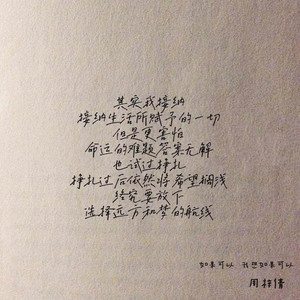 其实我接纳
接纳生活所赋予的一切
但是更害怕
命运的难题答案无解
也试过挣扎
挣扎过后依然将希望搁浅
终究要放下
选择远方和梦的航线
如果可以 我想如果可以
周梓倩